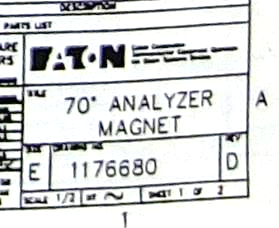 DESCRIPTION
PARTS LIST
EATON
TITLE
70° ANALYZER
MAGNET
A
SIZE
DRAWING NO.
REV
E
1176680
D
SCALE 1/2
WT
SHEET 1 OF 2
1